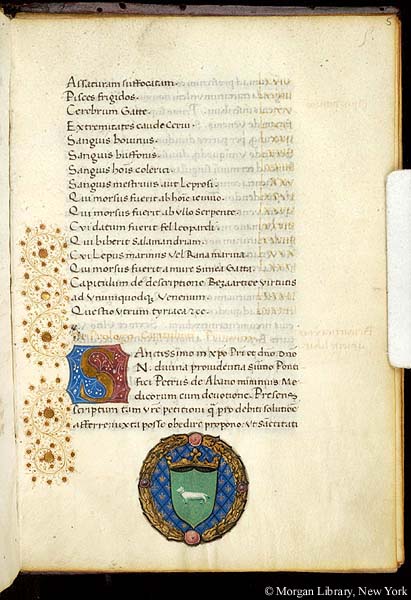 5
Assaturam suffocatam.
Pisces frigidos.
Cerebrum Gatte.
Extremitates caude Cerui.
Sanguis bouinus.
Sanguis buffonis.
Sanguis hoīs colerici.
Sanguis mestruus aut leprosi.
Qui morsus fuerit ab hoīe ieiuno.
Qui morsus fuerit ab ullo serpente.
Cui datum fuerit fel leopardi.
Qui biberit Salamandriam.
Cui Lepus marinus Vel Rana marina.
Qui morsus fuerit a mure sinea Gatta.
Capitulum de descriptione Bezaartice virtutis
ad Vnumquodq Venenum.
Questio utrum tyriaca zcc.
SAnctissimo in xpo Pri et dno. dno
N. diuina prouidentia sūmo Ponti
fici Petrus de Abano minimus Me
dicorum cum deuotione. Presens
scriptum tam ure petitioni q̄ pro debiti solutiōe
afferre: iuxta posse obedire propono: ut Sanctitati
© Morgan Library, New York